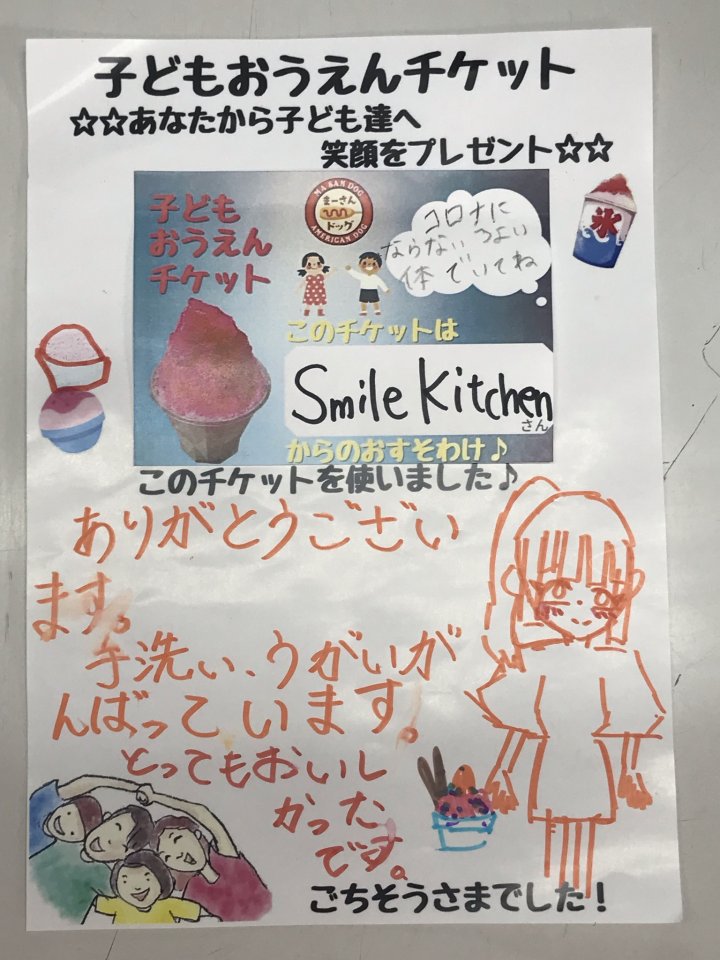 子どもおうえんチケット
☆☆あなたから子ども達へ
笑顔をプレゼント☆☆
子ども
おうえん
チケット
MA SAN DOG
まーさん
ドッグ
AMERICAN DOG
コロナに
ならないつよい
体でいてね
氷
このチケットは
Smile Kitchen
さん
からのおすそわけ♪
このチケットを使いました♪
ありがとうござい
ます。
手洗い、うがいが
んばっています!
とってもおいし
かった
です。
ごちそうさまでした!